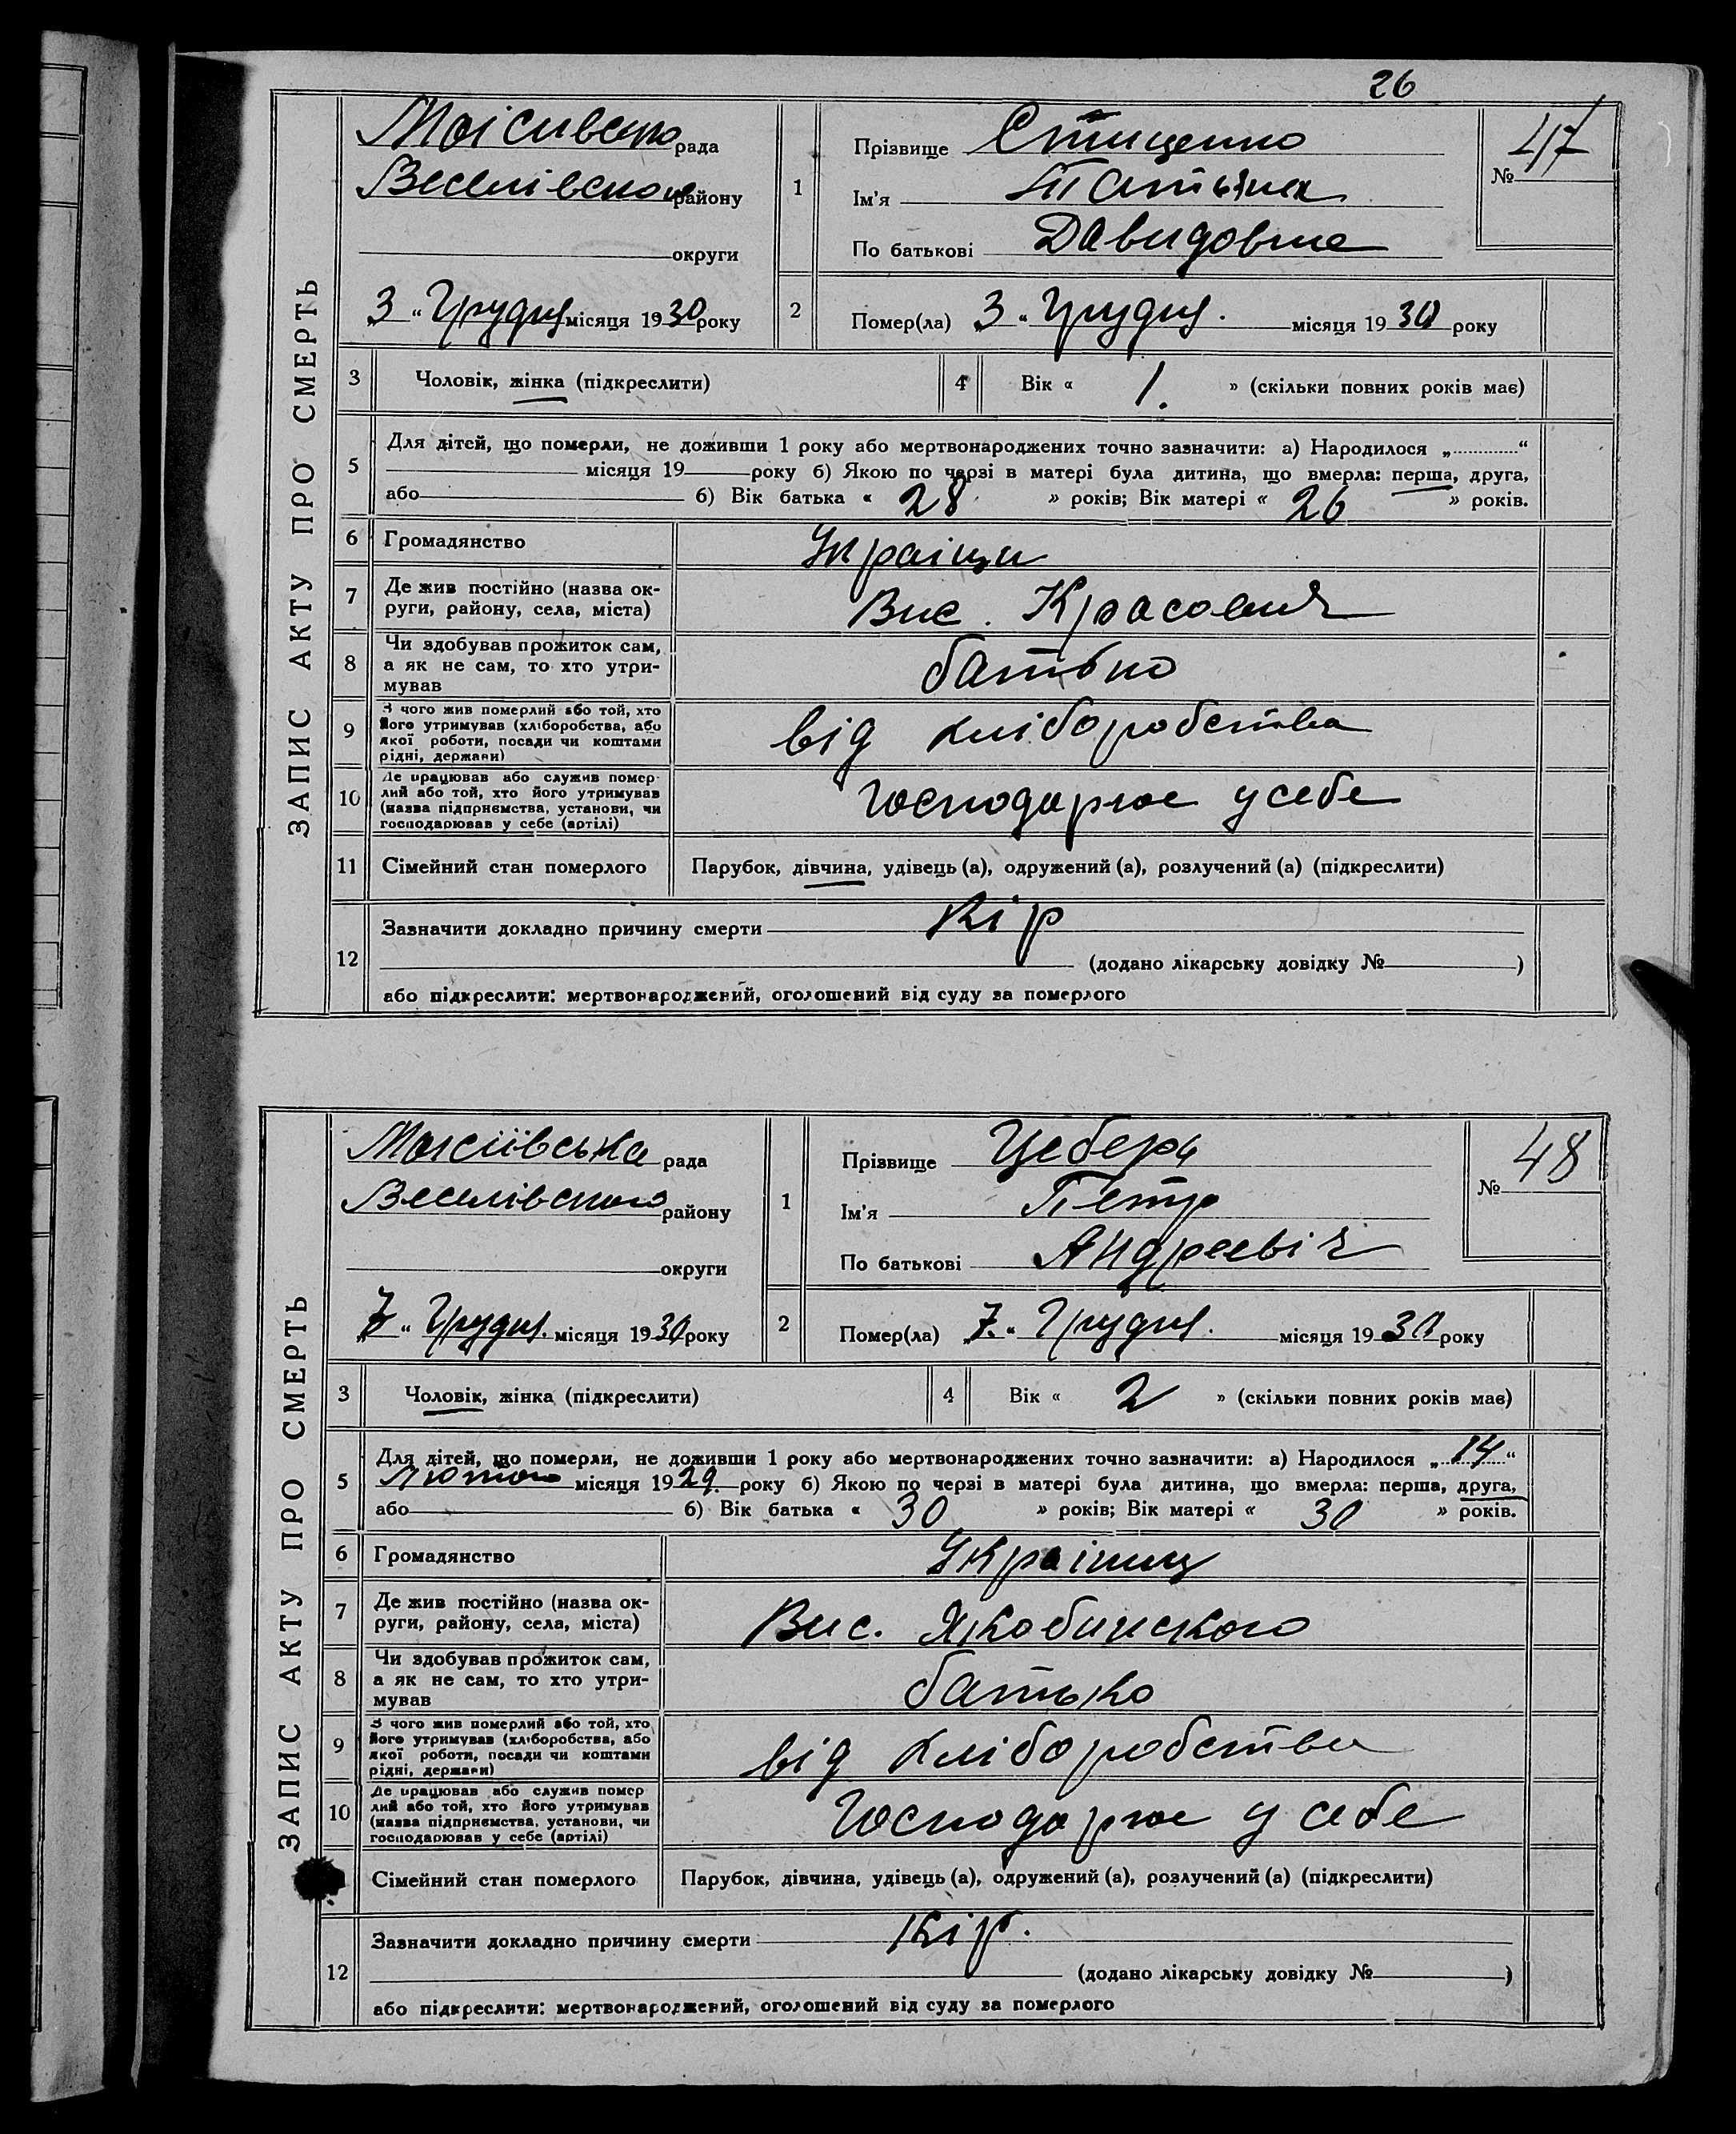 26
ЗАПИС АКТУ ПРО СМЕРТЬ
рада
району
округи
„3“ Грудня місяця 1930 року
1
Прізвище
Ім'я Татьяна
По батькові Давидовна
№ 47
2
Помер(ла) „3“ Грудня. місяця 1930 року
3 Чоловік, жінка (підкреслити)
4 Вік « 1. » (скільки повних років має)
5 Для дітей, що померли, не доживши 1 року або мертвонароджених точно зазначити: а) Народилося „ “
місяця 19 року б) Якою по черзі в матері була дитина, що вмерла: перша, друга,
або б) Вік батька « 28 » років; Вік матері « 26 » років.
6 Громадянство
7 Де жив постійно (назва ок-
руги, району, села, міста)
Вис.
8 Чи здобував прожиток сам,
а як не сам, то хто утри-
мував
батько
9 З чого жив померлий або той, хто
його утримував (хліборобства, або
якої роботи, посади чи коштами
рідні, держави)
від хліборобства
10 Де працював або служив помер-
лий або той, хто його утримував
(назва підприємства, установи, чи
господарював у себе (артілі)
Господарює у себе
11 Сімейний стан померлого Парубок, дівчина, удівець (а), одружений (а), розлучений (а) (підкреслити)
12 Зазначити докладно причину смерти Кір
(додано лікарську довідку № )
або підкреслити: мертвонароджений, оголошений від суду за померлого
ЗАПИС АКТУ ПРО СМЕРТЬ
рада
Веселівського району
округи
„7“ Грудня. місяця 1930 року
1
Прізвище Цеберь
Ім'я Петр
По батькові Андреевіч
№ 48
2
Помер(ла) „7.“ Грудня. місяця 1930 року
3 Чоловік, жінка (підкреслити)
4 Вік « 2 » (скільки повних років має)
5 Для дітей, що померли, не доживши 1 року або мертвонароджених точно зазначити: а) Народилося „14“
Лютого місяця 1929. року б) Якою по черзі в матері була дитина, що вмерла: перша, друга,
або б) Вік батька « 30 » років; Вік матері « 30 » років.
6 Громадянство Україниц
7 Де жив постійно (назва ок-
руги, району, села, міста)
Вис. Якобинского
8 Чи здобував прожиток сам,
а як не сам, то хто утри-
мував
батько
9 З чого жив померлий або той, хто
його утримував (хліборобства, або
якої роботи, посади чи коштами
рідні, держави)
від хліборобства
10 Де працював або служив помер
лий або той, хто його утримував
(назва підприємства, установи, чи
господарював у себе (артілі)
Господарює у себе
Сімейний стан померлого Парубок, дівчина, удівець (а), одружений (а), розлучений (а) (підкреслити)
12 Зазначити докладно причину смерти Кір.
(додано лікарську довідку № )
або підкреслити: мертвонароджений, оголошений від суду за померлого